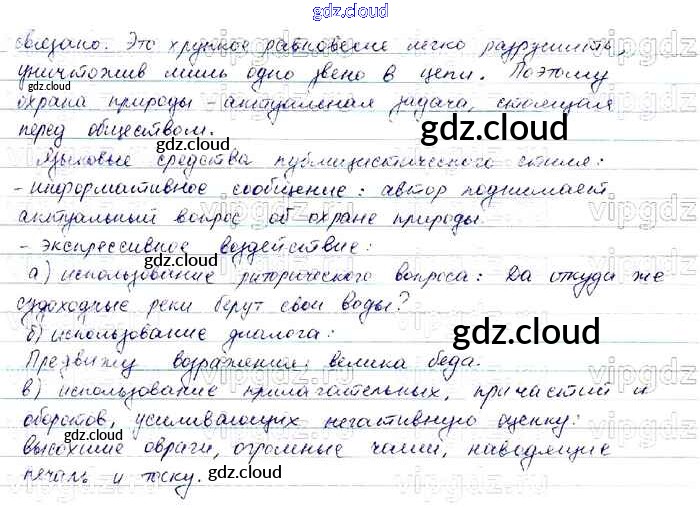 gdz.cloud
связано. Это хрупкое равновесие легко разрушить,
уничтожив лишь одно звено в цепи. Поэтому
охрана природы – актуальная задача, стоящая
перед обществом.
gdz.cloud
Языковые средства публицистического стиля:
- информативное сообщение: автор поднимает
актуальный вопрос об охране природы.
- экспрессивное воздействие:
gdz.cloud
а) использование риторического вопроса: Да откуда же
судоходные реки берут свои воды?
gdz.cloud
б) использование диалога:
gdz.cloud
Предвижу возражения: велика беда.
в) использование прилагательных, причастий и
оборотов, усиливающих негативную оценку:
gdz.cloud
высохшие овраги, огромные чаши, наводящие
печаль и тоску.
gdz.cloud
vipgdz